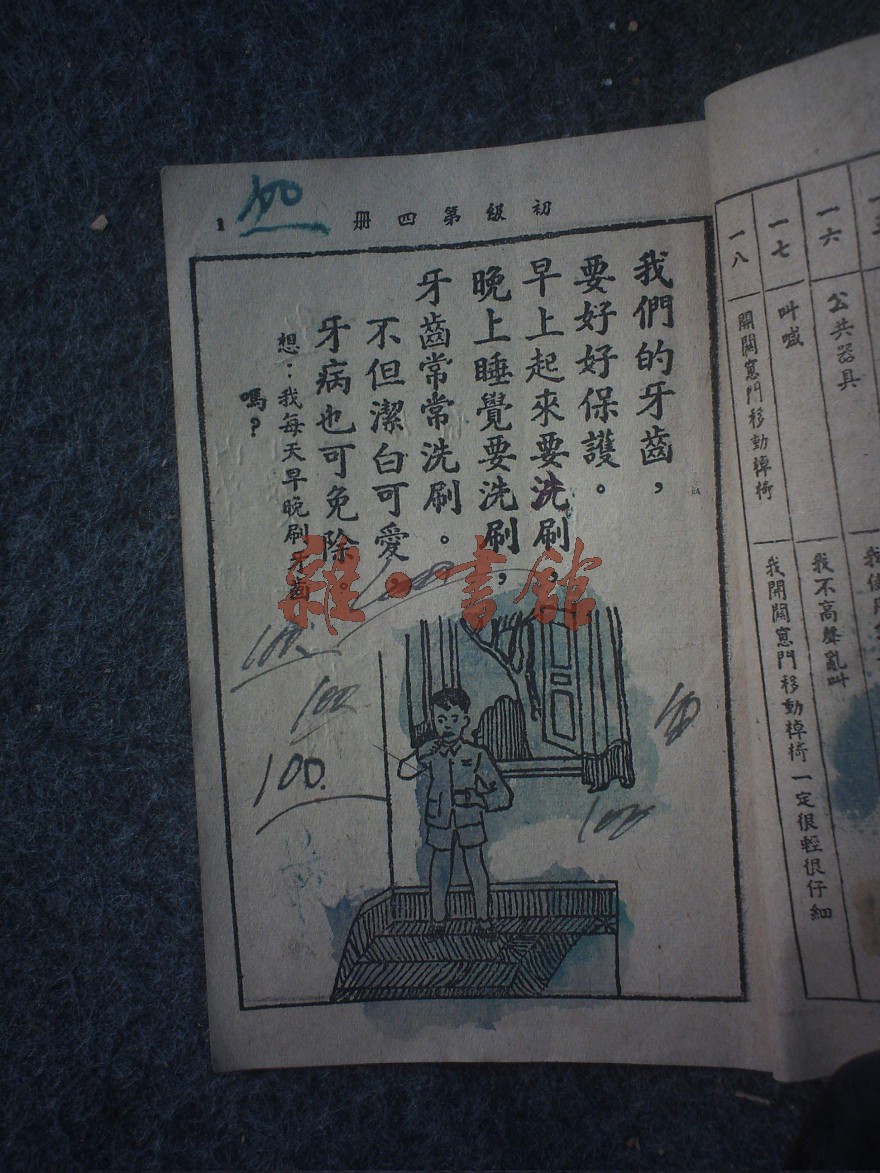 初級第四册
1
100
我們的牙齒，
要好好保護。
早上起來要洗刷，
晚上睡覺要洗刷，
牙齒常常洗刷。
不但潔白可愛，
牙病也可免除。
想：我每天早晚刷牙齒
嗎？
雜·書館
100
100
100
100.
100
一六
公共器具
一七
叫喊
我不高聲亂叫
一八
開關窻門移動棹椅
我開關窻門移動棹椅一定很輕很仔細